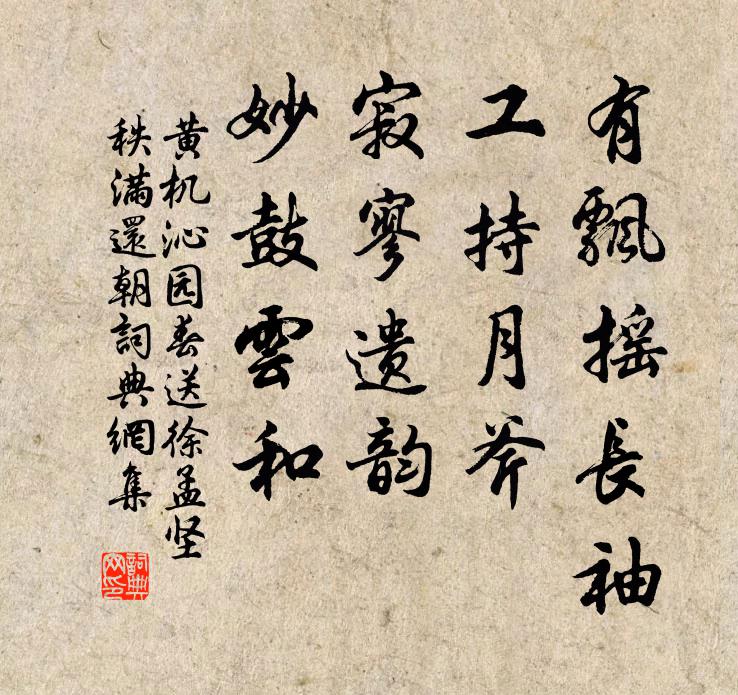 有飘摇長袖
工持月斧
寂寥遗韵
妙鼓雲和
黄机沁园春送徐孟坚
秩滿還朝詞典網集
詞典
网印